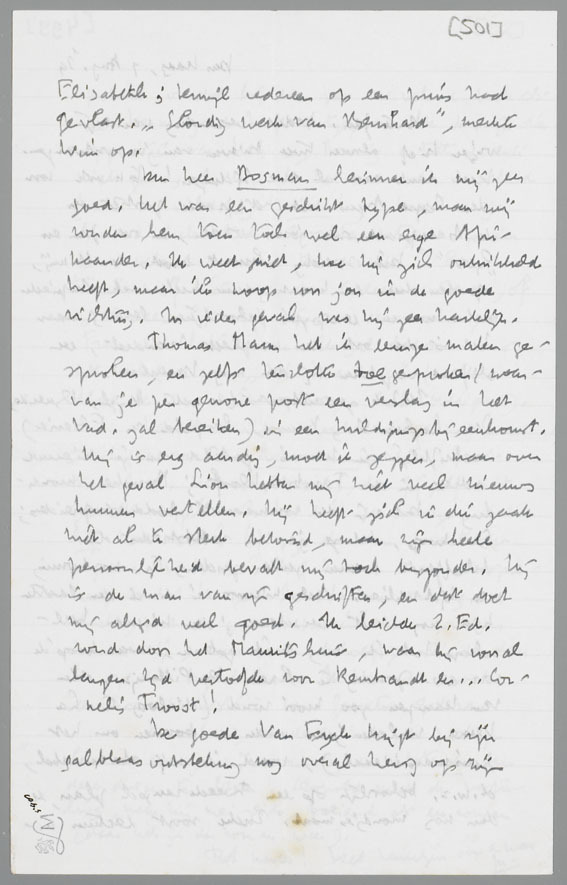 [501]
Elisabeth; terwijl iedereen op een prins had
gevlast. „Slordig werk van Bernhard", merkte
Wim op.
Den heer Bosman herinner ik mij zeer
goed. Het was een geschikt type, maar wij
vonden hem toen toch wel een erge Afri-
kaander. Ik weet niet, hoe hij zich ontwikkeld
heeft, maar ik hoop voor jou in de goede
richting. In ieder geval was hij zeer hartelijk.
Thomas Mann heb ik eenige malen ge-
sproken, en zelfs tenslotte toegesproken (waar-
van je per gewone post een verslag in het
Vad. zal bereiken) in een huldigingsbijeenkomst.
Hij is erg aardig, moet ik zeggen, maar over
het geval Lion hebben wij niet veel nieuws
kunnen vertellen. Hij heeft zich in die zaak
niet al te sterk betoond, maar zijn heele
persoonlijkheid bevalt mij toch bijzonder. Hij
is de man van zijn geschriften, en dat doet
mij altijd veel goed. Ik leidde Z.Ed.
rond door het Mauritshuis, waar hij vooral
langen tijd vertoefde voor Rembrandt en... Cor-
nelis Troost!
De goede Van Eyck krijgt bij zijn
galblaasontsteking nog overal heng op zijn